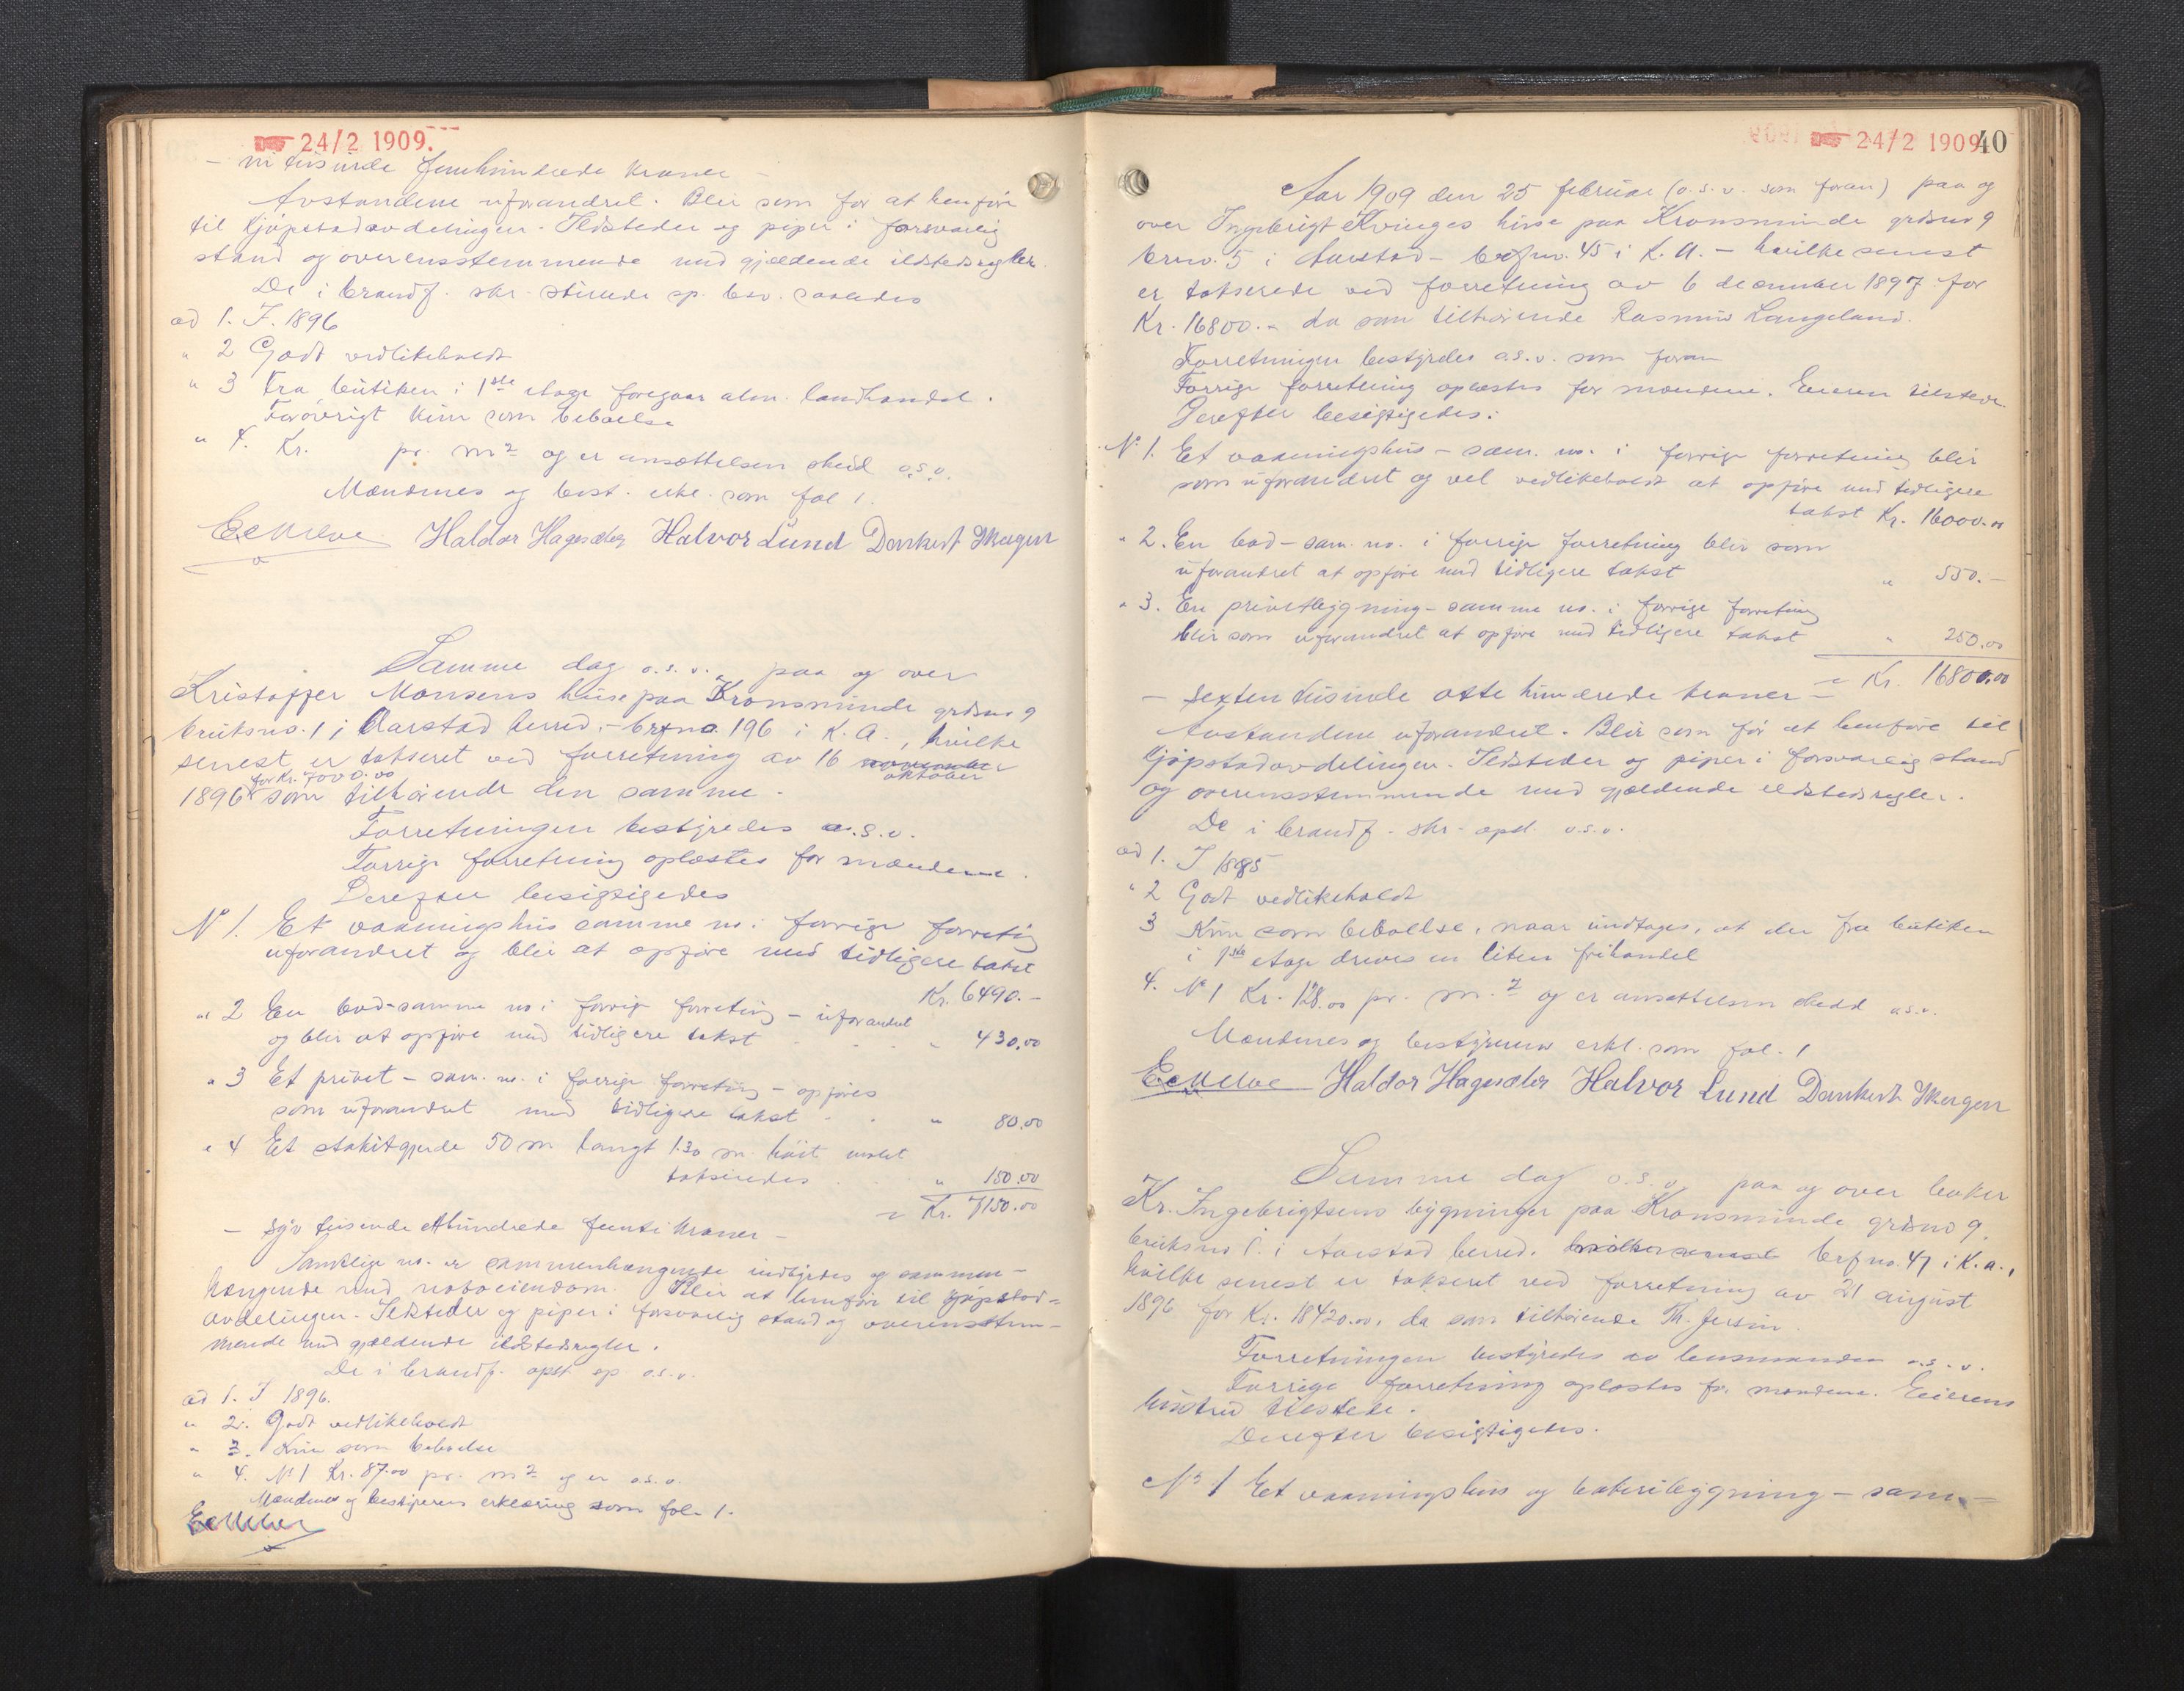 24/2 1909.
— ni tusinde femhundrede kroner —
Avstandene uforandret. Blir som før at henføre
til kjøpstadavdelingen. Ildsteder og piper i forsvarlig
stand og overensstemmende med gjældende ildstedsregler.
De i brandf. skr. stillede sp. besv. saaledes
ad 1. I. 1896
" 2 Godt vedlikeholdt
" 3 Fra butiken i 1ste etage foregaar alm. landhandel.
Forøvrigt kun som beboelse
" 4. Kr. pr. m² og er ansættelsen skeid o.s.v.
Mændenes og best. erkl. som fol 1.
Haldor Hagesæter Halvor Lund Dankert Skagen
Samme dag o.s.v. paa og over
Kristoffer Monsens huse paa Kronsminde grdsno 9
bruksno. 1 i Aarstad herred, - brfno. 196 i K.A., hvilke
senest er takseret ved forretning av 16 november oktober
1896 for Kr. 7000.00 som tilhørende den samme.
Forretningen bestyredes o.s.v.
Forrige forretning oplæstes for mændene.
Derefter besigtigedes
No 1. Et vaaningshus samme no. i forrige forretng
uforandret og blir at opføre med tidligere takst
Kr. 6490.-
" 2 En bod - samme no i forrige forretning - uforandret
og blir at opføre med tidligere takst " 430.00
" 3 Et privet - sam. no. i forrige forretning - opføres
som uforandret med tidligere takst " 80.00
" 4 Et stakitgjerde 50 m langt 1.30 m. høit malet
takseredes " 150.00
= Kr. 7150.00
— syv tusinde ethundrede femti kroner —
Samtlige no. er sammenhængende indbyrdes og sammen-
hængende med naboeiendom. Blir at henføre til kjøpstad-
avdelingen. Ildsteder og piper i forsvarlig stand og overensstem-
mende med gjældende ildstedsregler.
De i brandf. opst. sp o.s.v.
ad 1. I 1896.
" 2. Godt vedlikeholdt
" 3. Kun som beboelse
" 4. No 1 Kr. 87.00 pr. m² og er o.s.v.
Mændenes og bestyrerens erklæring som fol. 1.
24/2 1909
40
Aar 1909 den 25 februar (o.s.v. som foran) paa og
over Ingebrigt Kvinges huse paa Kronsminde grdsno 9
brno. 5 i Aarstad - brfno. 45 i K.A. - hvilke senest
er takserede ved forretning av 6 december 1897 for
Kr. 16800.- da som tilhørende Rasmus Langeland.
Forretningen bestyredes o.s.v. som foran
Forrige forretning oplæstes for mændene. Eieren tilstede
Derefter besigtigedes:
No 1. Et vaaningshus - sam. no. i forrige forretning blir
som uforandret og vel vedlikeholdt at opføre med tidligere
takst Kr. 16000.00
" 2. En bod - sam. no. i forrige forretning blir som
uforandret at opføre med tidligere takst " 550.-
" 3. En privetbygning - samme no. i forrige forretning
blir som uforandret at opføre med tidligere takst " 250.00
= Kr. 16800.00
— sexten tusinde otte hundrede kroner —
Avstandene uforandret. Blir som før at henføre til
kjøpstadavdelingen. Ildsteder og piper i forsvarlig stand
og overensstemmende med gjældende ildstedsregler.
De i brandf. skr. opst. o.s.v.
ad 1. I 1895
" 2 Godt vedlikeholdt
3 Kun som beboelse, naar undtages, at der fra butiken
i 1ste etage drives en liten frihandel
4. No 1 Kr. 128.00 pr. m.² og er ansættelsen skedd o.s.v.
Mændenes og bestyrerens erkl. som fol. 1
Haldor Hagesæter Halvor Lund Dankert Skagen
Samme dag o.s.v. paa og over baker
Kr. Ingebrigtsens bygninger paa Kronsminde grdsno 9.
bruksno 1. i Aarstad herred. hvilke senest brfno. 47 i K.A.,
hvilke senest er takseret ved forretning av 21 august
1896 for Kr. 18420.00, da som tilhørende Th. Jersin.
Forretningen bestyredes av lensmanden o.s.v.
Forrige forretning oplæstes for mændene. Eierens
hustru tilstede.
Derefter besigtigedes.
No 1 Et vaaningshus og bakeribygning - sam. -